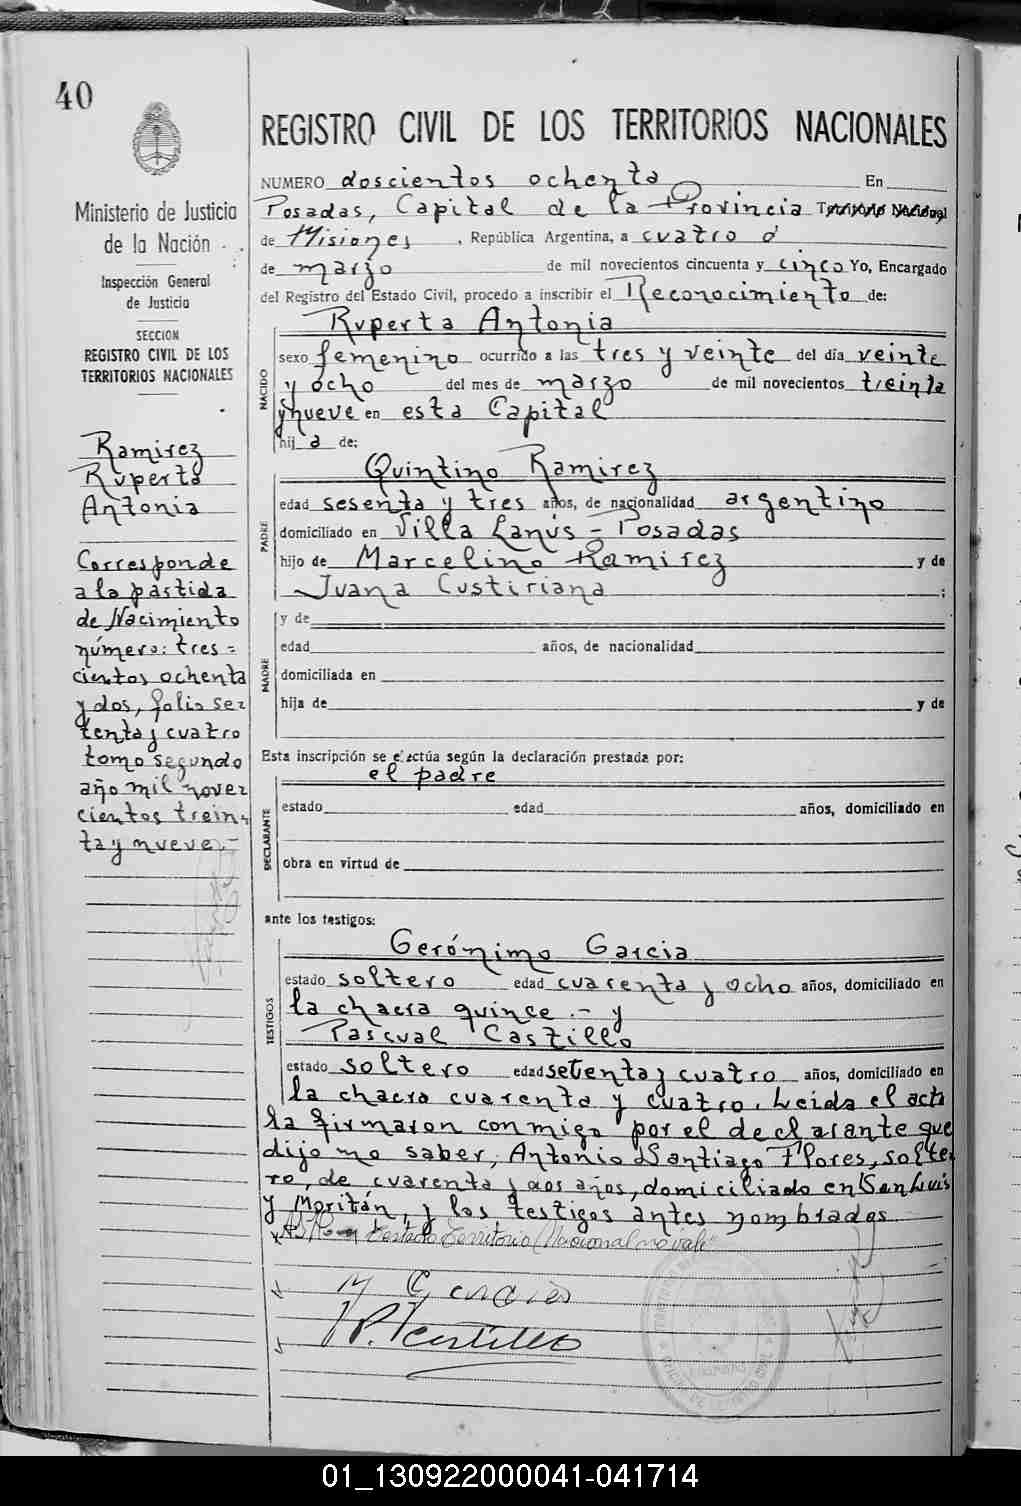 40
Ministerio de Justicia
de la Nación
Inspección General
de Justicia
SECCION
REGISTRO CIVIL DE LOS
TERRITORIOS NACIONALES
Ramirez
Ruperta
Antonia
Corresponde
a la partida
de Nacimiento
número: tres=
cientos ochenta
y dos, folio se=
tenta y cuatro
tomo segundo
año mil nove=
cientos trein=
ta y nueve.-
REGISTRO CIVIL DE LOS TERRITORIOS NACIONALES
NUMERO doscientos ochenta En
Posadas, Capital de la Provincia Territorio Nacional
de Misiones, República Argentina, a cuatro
de marzo de mil novecientos cincuenta y cinco Yo, Encargado
del Registro del Estado Civil, procedo a inscribir el Reconocimiento de:
NACIDO
Ruperta Antonia
sexo femenino ocurrido a las tres y veinte del día veinte
y ocho del mes de marzo de mil novecientos treinta
y nueve en esta Capital
hij a de:
PADRE
Quintino Ramirez
edad sesenta y tres años, de nacionalidad argentino
domiciliado en Villa Lanús = Posadas
hijo de Marcelino Ramirez y de
Juana Custiriana ;
MADRE
y de
edad años, de nacionalidad
domiciliada en
hija de y de
Esta inscripción se efectúa según la declaración prestada por:
el padre
DECLARANTE
estado edad años, domiciliado en
obra en virtud de
ante los testigos:
TESTIGOS
Gerónimo Garcia
estado soltero edad cuarenta y ocho años, domiciliado en
la chacra quince.- y
Pascual Castillo
estado soltero edad setenta y cuatro años, domiciliado en
la chacra cuarenta y cuatro. Leida el acta
la firmaron conmigo por el declarante que
dijo no saber, Antonio Santiago Flores, solte=
ro, de cuarenta y dos años, domiciliado en San Luis
y Moritán, y los testigos antes nombrados
Testado Territorio Nacional no vale
P. Castillo
01_130922000041-041714